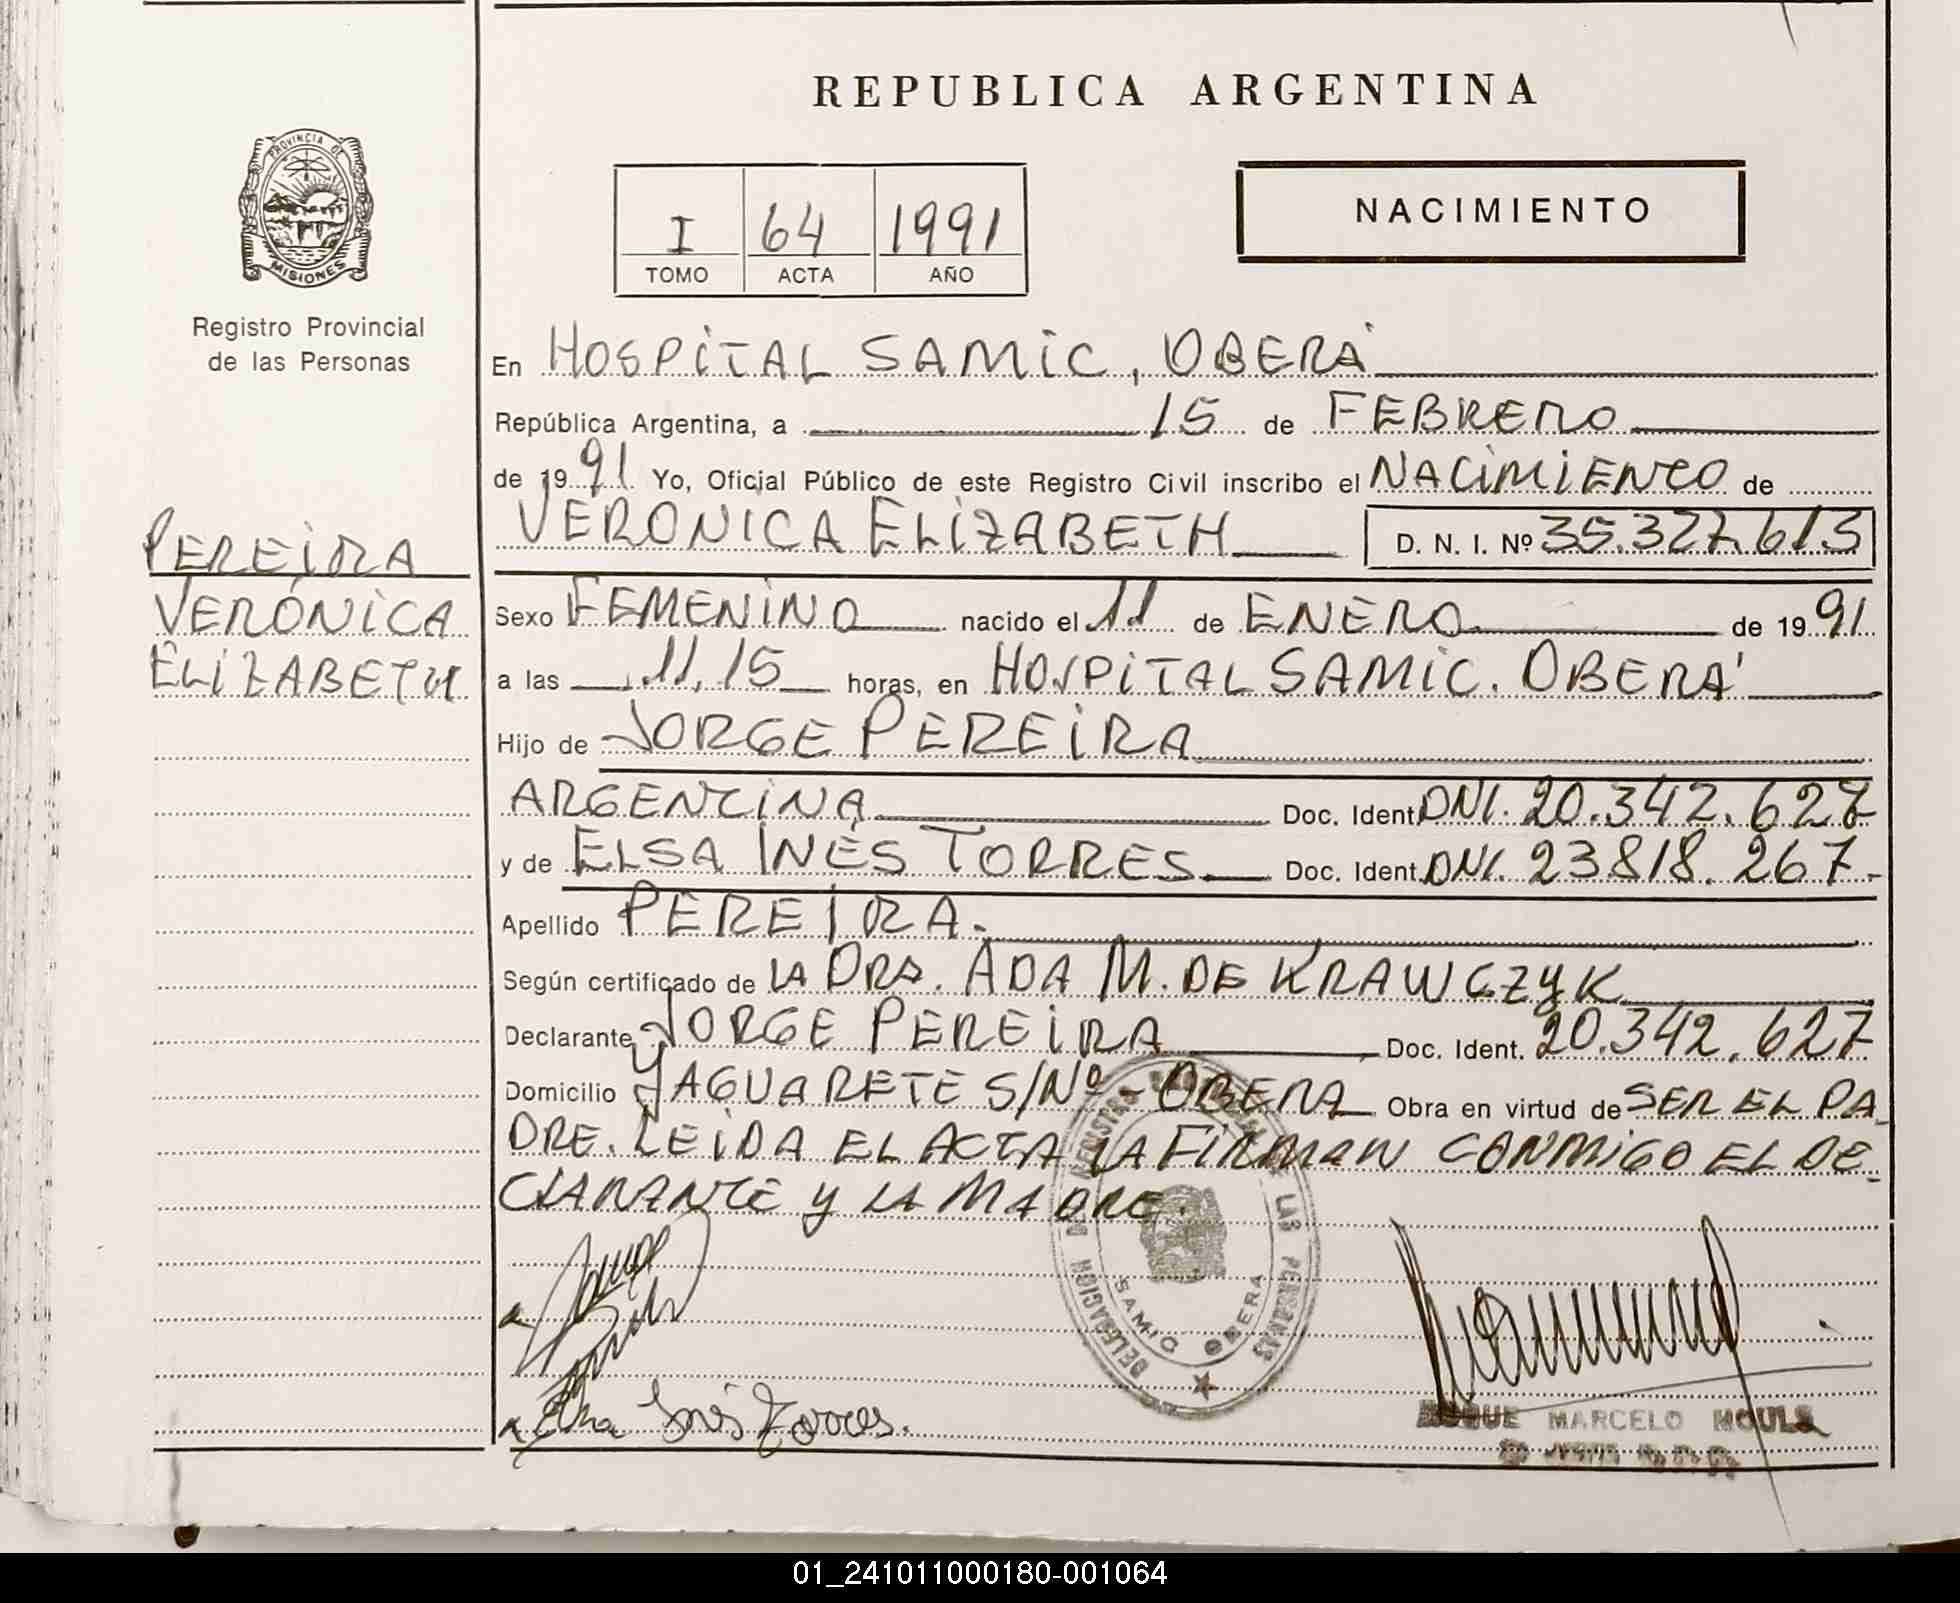 REPUBLICA ARGENTINA
PROVINCIA DE
MISIONES
Registro Provincial
de las Personas
I 64 1991
TOMO ACTA AÑO
NACIMIENTO
En HOSPITAL SAMIC, OBERÁ
República Argentina, a 15 de FEBRERO
de 1991 Yo, Oficial Público de este Registro Civil inscribo el NACIMIENTO de
VERONICA ELIZABETH D. N. I. Nº 35.327.613
PEREIRA
VERÓNICA
ELIZABETH
Sexo FEMENINO nacido el 11 de ENERO de 1991
a las 11,15 horas, en HOSPITAL SAMIC. OBERÁ
Hijo de JORGE PEREIRA
ARGENTINA Doc. Ident. DNI. 20.342.627
y de ELSA INÉS TORRES Doc. Ident. DNI. 23818.267.
Apellido PEREIRA.
Según certificado de LA DRA. ADA M. DE KRAWCZYK
Declarante JORGE PEREIRA Doc. Ident. 20.342.627
Domicilio YAGUARETE S/Nº - OBERA Obra en virtud de SER EL PA
DRE. LEIDA EL ACTA LA FIRMAN CONMIGO EL DE-
CLARANTE Y LA MADRE.
DELEGACION DEL REGISTRO LAS PERSONAS
SAMIC OBERA
Elsa Inés Torres.
MARCELO
01_241011000180-001064